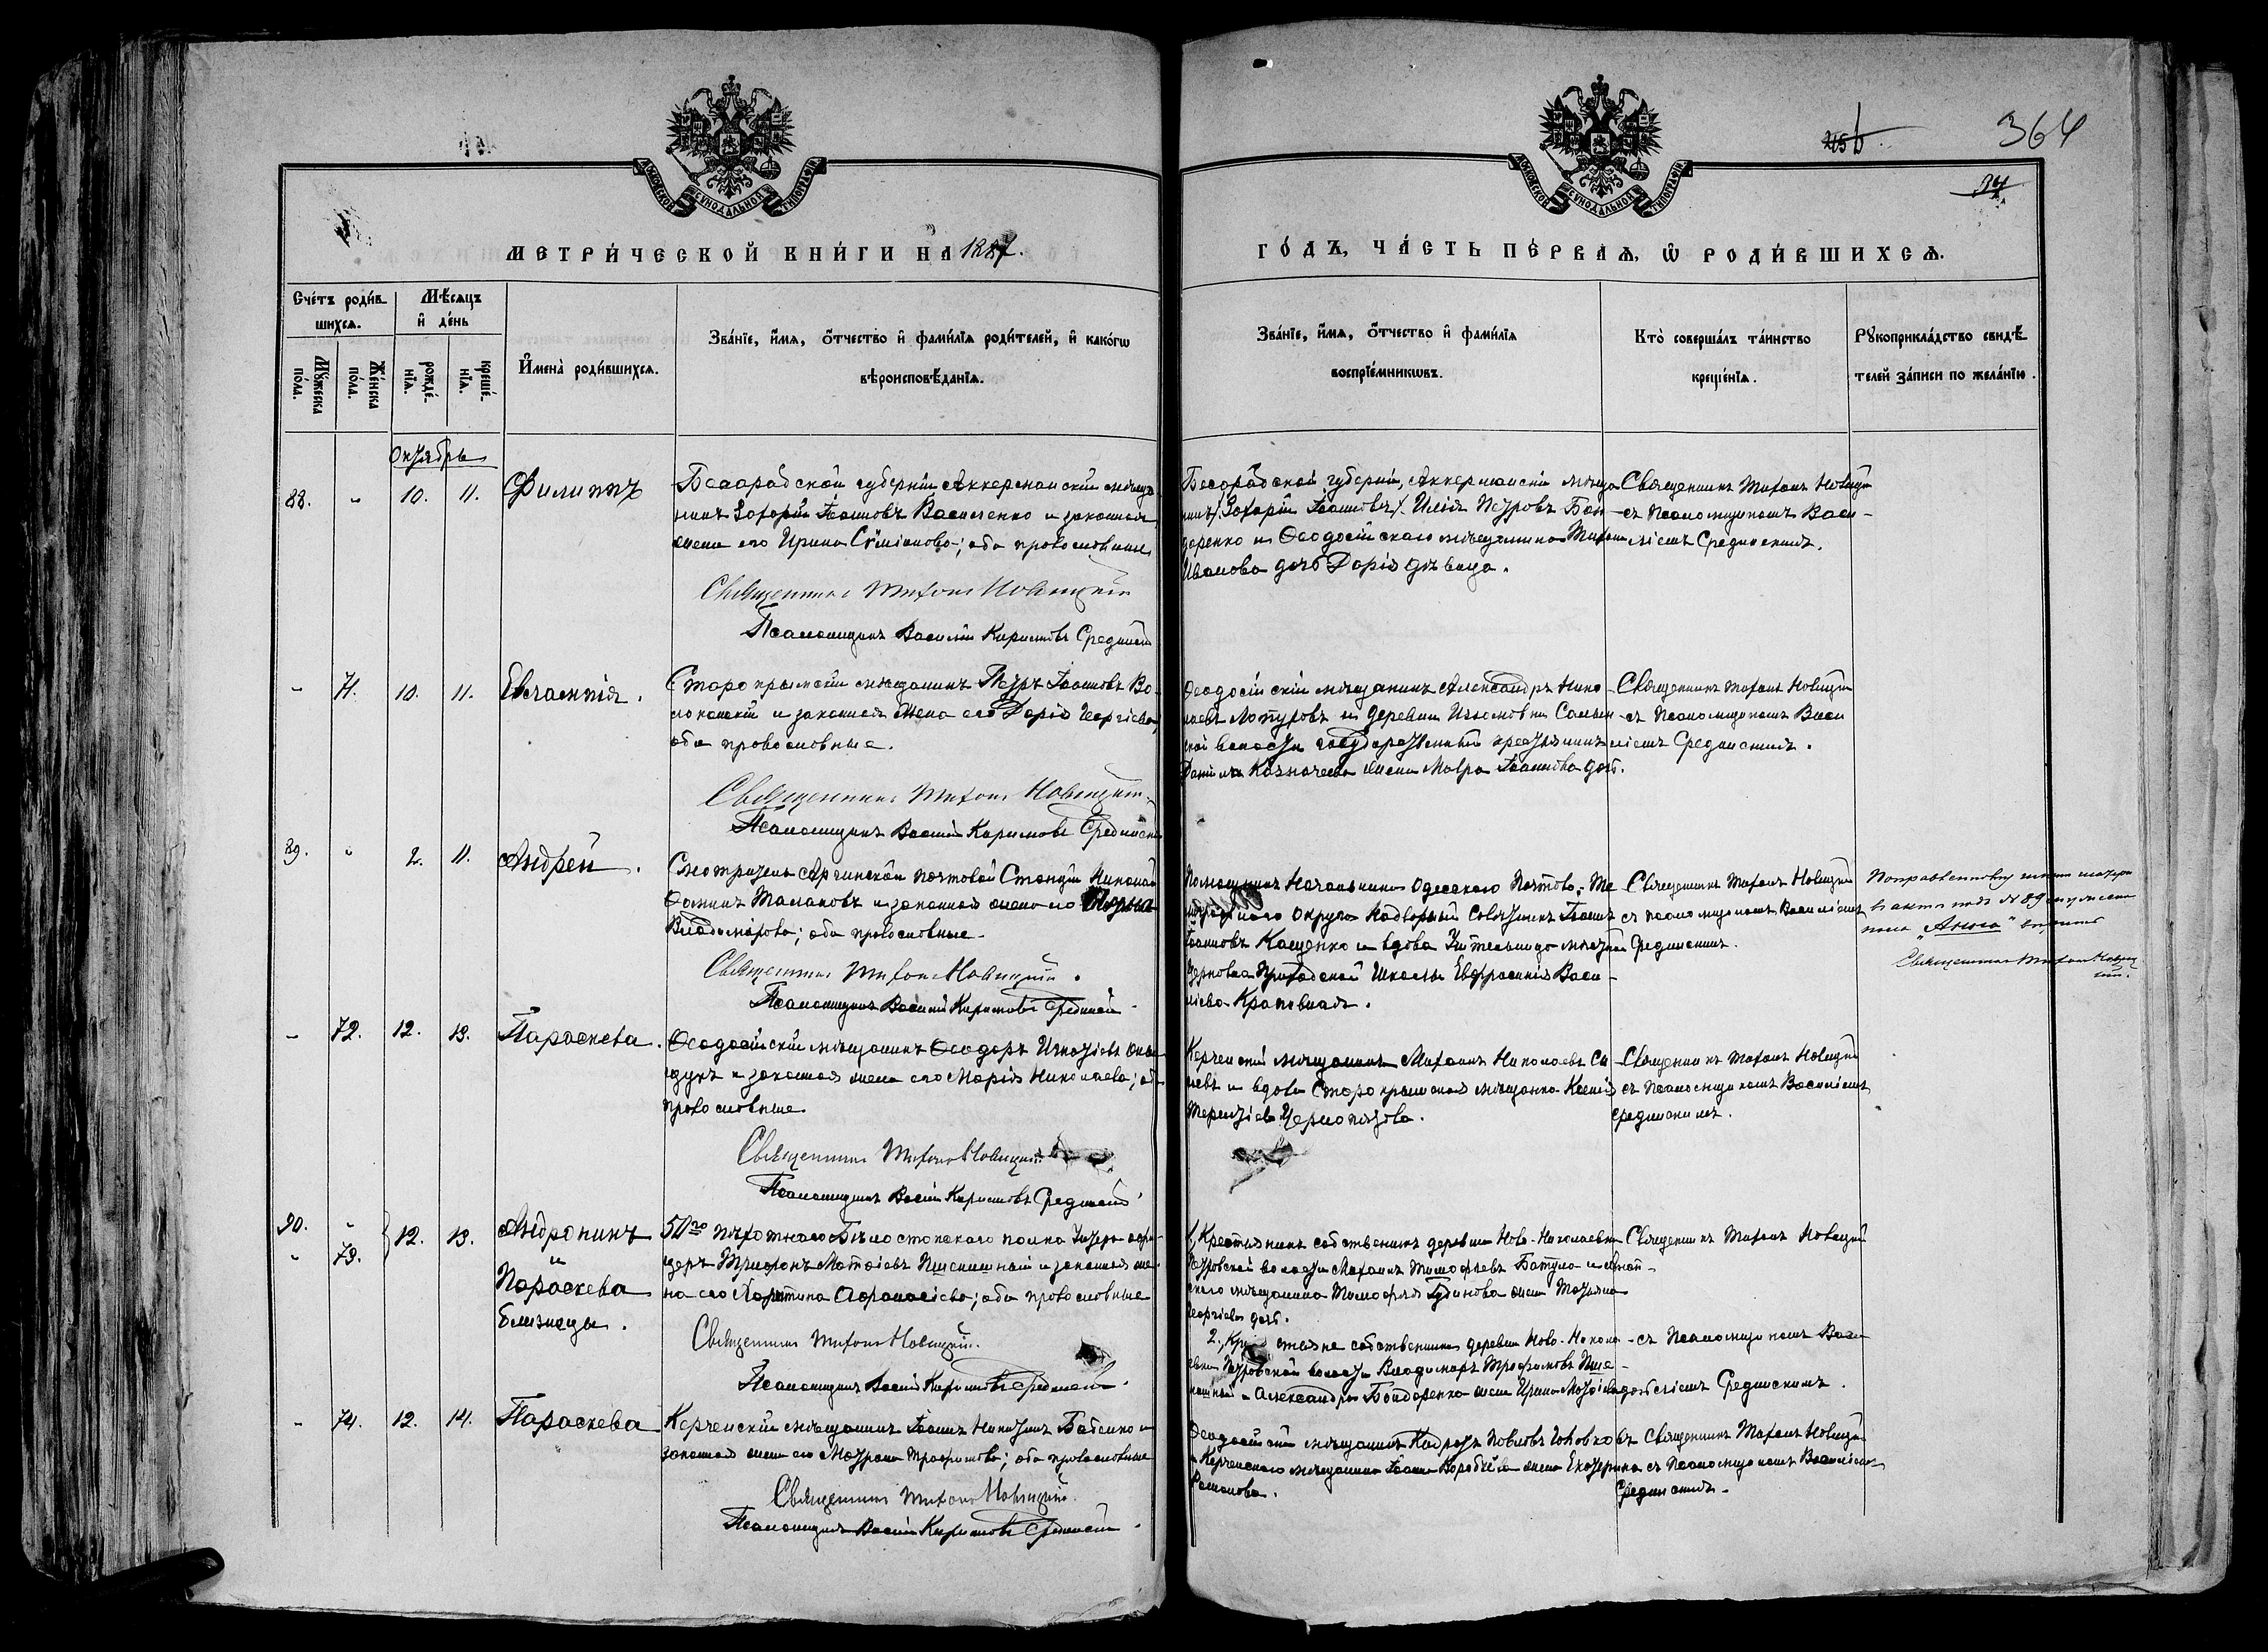 364
МОСКОВСКОЙ СѴНОДАЛЬНОЙ ТИПОГРАФІИ
МОСКОВСКОЙ СѴНОДАЛЬНОЙ ТИПОГРАФІИ
МЕТРИ́ЧЕСКОЙ КНИ́ГИ НА 1887.
ГО́ДЪ, ЧА́СТЬ ПЕ́РВАѦ, Ѡ РОДИ́ВШИХСѦ.
Счétъ роди́в-
шихсѧ.
Мѣ́сѧцъ
и҆ де́нь
Мꙋ́жеска по́ла.
Же́нска по́ла.
рожде́-нїѧ.
креще́-нїѧ.
И҆мена̀ роди́вшихсѧ.
Зва́нїе, и҆́мѧ, о҆́тчество и҆ фами́лїѧ роди́телей, и҆ како́гѡ
вѣроисповѣ́данїѧ.
Зва́нїе, и҆́мѧ, о҆́тчество и҆ фами́лїѧ
воспрїе́мникѡвъ.
Кто̀ соверша́лъ та́инство
креще́нїѧ.
Рꙋкоприкла́дство свидѣ́-
телей за́писи по жела́нїю.
Октябрь
88. " 10. 11. Филиппъ
Бессарабской губерніи Аккерманскій мѣща-
нинъ Захарій Іоанновъ Василенко и законная
жена его Ирина Сѵміонова; оба православные
Священникъ Тихонъ Новицкій
Псаломщикъ Василій Кириловъ Срединскій
Бессарабской губерніи, Аккерманскій мѣща-
нинъ Захарій Іоанновъ Илія Петровъ Бон-
даренко и Ѳеодосійскаго мѣщанина Тихона
Иванова дочь Дарія дѣвица.
Священникъ Тихонъ Новицкій
съ Псаломщикомъ Васи-
ліемъ Срединскимъ.
" 71. 10. 11. Евлампія.
Старокрымскій мѣщанинъ Петръ Іоанновъ Во-
лонскій и законная жена его Дарія Георгіева,
оба православные.
Священникъ Тихонъ Новицкій
Псаломщикъ Василій Кириловъ Срединскій
Ѳеодосійскій мѣщанинъ Александръ Нико-
лаевъ и деревни Изюмовки Салын-
ской волости государственный крестьянинъ
Даніила Казначеева жена Мавра Іоаннова дочь.
Священникъ Тихонъ Новицкій
съ Псаломщикомъ Васи-
ліемъ Срединскимъ.
89. " 2. 11. Андрей.
Смотритель Аргинской почтовой Станціи Николай
Ѳоминъ Талановъ и законная жена его
Владимірова; оба православные.
Священникъ Тихонъ Новицкій.
Псаломщикъ Василій Кириловъ Срединскій
Помощникъ Начальника Одесскаго Почтово-Те-
леграфнаго Округа Надворный Совѣтникъ Іоаннъ
Іоанновъ Кащенко и вдова Учительница мѣстной
Церковно Приходской Школы Евфросинія Васи-
ліева
Священникъ Тихонъ Новицкій
съ псаломщикомъ Василіемъ
Срединскимъ.
въ актѣ подъ № 89 мужеска
пола
Священникъ Тихонъ Новиц-
кій.
" 72. 12. 13. Параскева.
Ѳеодосійскій мѣщанинъ Ѳеодоръ Игнатіевъ
и законная жена его Марія Николаева; оба
православные.
Священникъ Тихонъ Новицкій
Псаломщикъ Василій Кириловъ Срединскій
Керченскій мѣщанинъ Михаилъ Николаевъ
и вдова Старокрымская мѣщанка Ксенія
Терентіева
Священникъ Тихонъ Новицкій
съ Псаломщикомъ Василіемъ
Срединскимъ.
90. " 12. 13. Андроникъ
" 73. и
Параскева
близнецы.
50го пѣхотнаго Бѣлостокскаго полка Унтеръ офи-
церъ Трифонъ Матѳіевъ Пшеничный и законная же-
на его Аѳанасіева; оба православные
Священникъ Тихонъ Новицкій.
Псаломщикъ Василій Кириловъ Срединскій.
1, Крестьянинъ собственникъ деревни Ново-Николаевки
Петровской волости Михаилъ Тимофеевъ Батула и
мѣщанина Тимофея жена Татьяна
Георгіева дочь.
2, Крестьяне собственники деревни Ново-Никола-
евки Петровской волости Владиміръ Трофимовъ Пше-
ничный и Александра Бондаренко жена Ирина дочь
Священникъ Тихонъ Новицкій
съ Псаломщикомъ Васи-
ліемъ Срединскимъ.
" 74. 12. 14. Параскева
Керченскій мѣщанинъ Іоаннъ Никитинъ Бабенко и
законная жена его Матрона Трофимова; оба православные
Священникъ Тихонъ Новицкій.
Псаломщикъ Василій Кириловъ Срединскій.
Ѳеодосійскій мѣщанинъ Кодратъ Павловъ
и Керченскаго мѣщанина Іоанна Воробьева жена Екатерина
Романова.
Священникъ Тихонъ Новицкій
съ Псаломщикомъ Василіемъ
Срединскимъ.